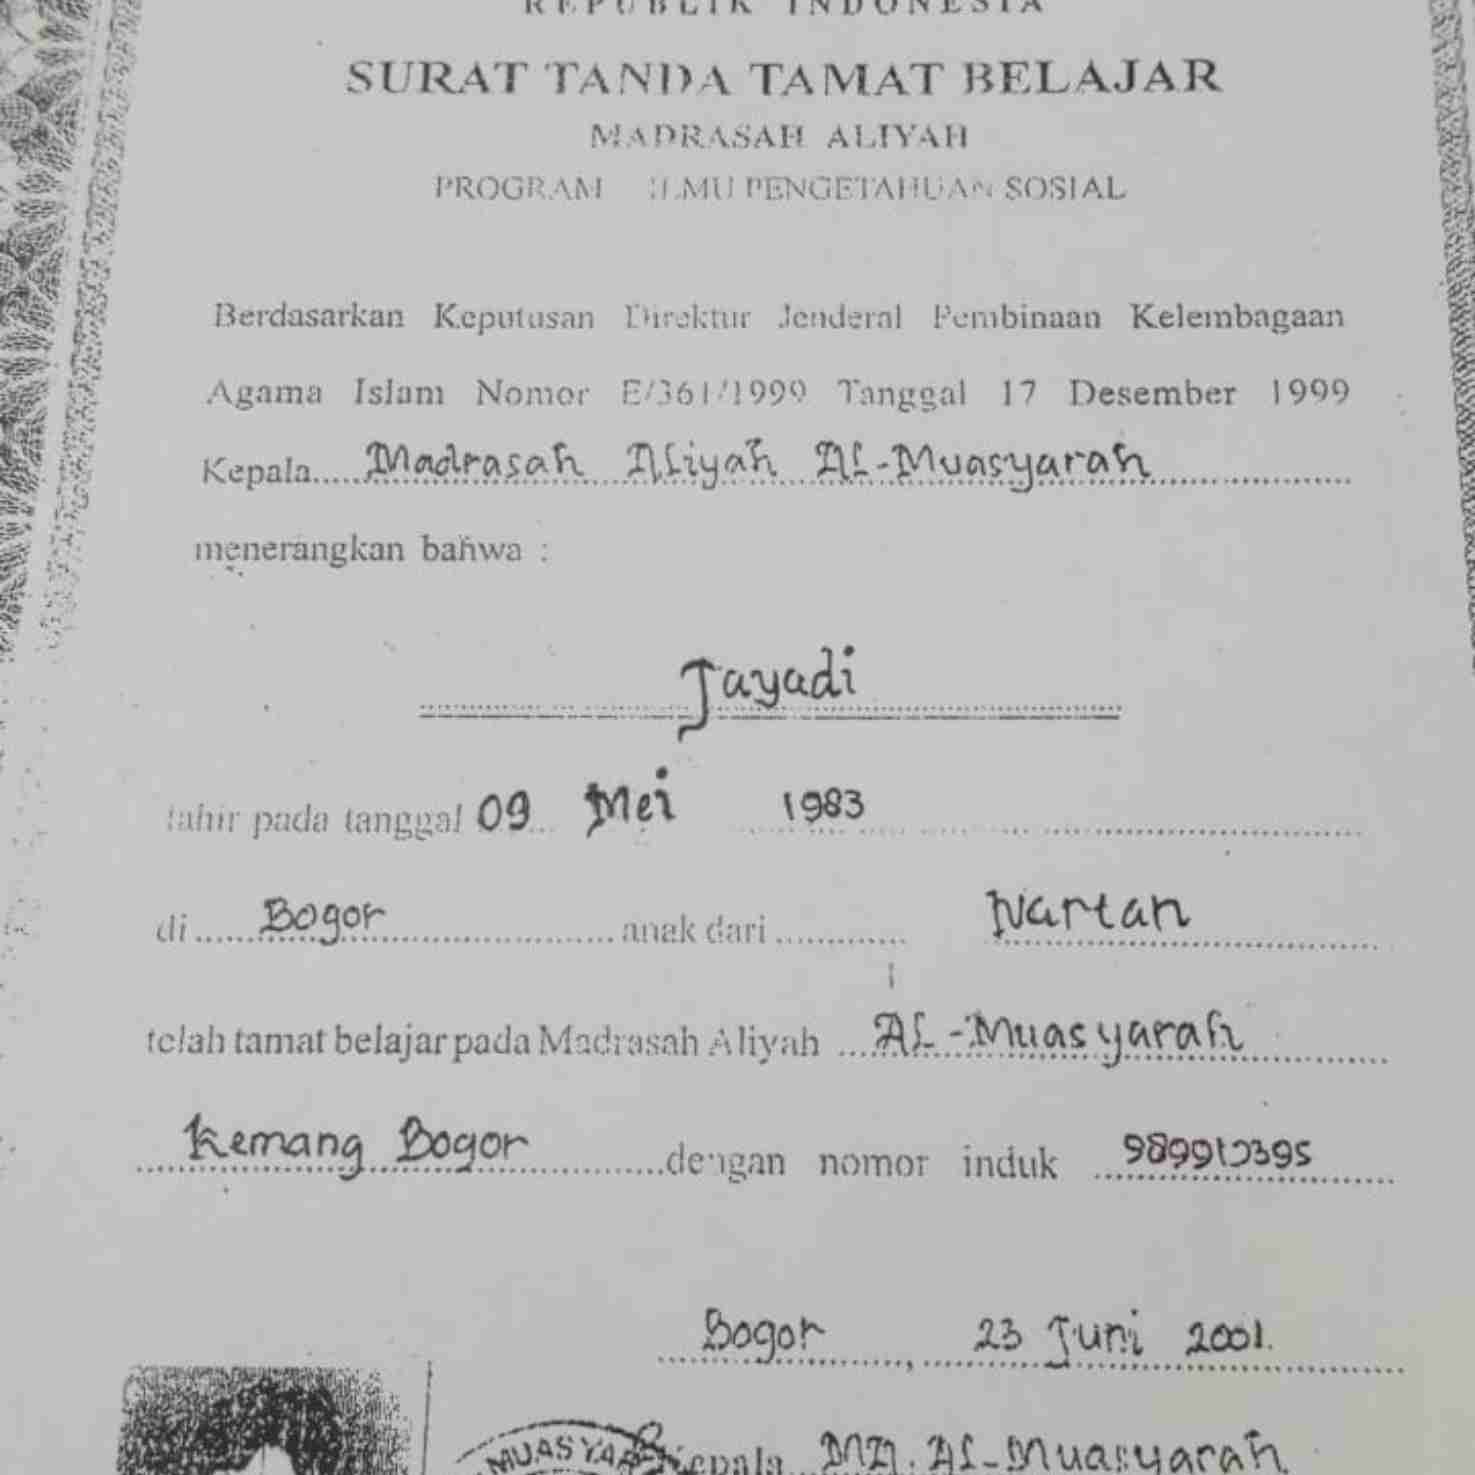 REPUBLIK INDONESIA
SURAT TANDA TAMAT BELAJAR
MADRASAH ALIYAH
PROGRAM ILMU PENGETAHUAN SOSIAL
Berdasarkan Keputusan Direktur Jenderal Pembinaan Kelembagaan
Agama Islam Nomor E/361/1999 Tanggal 17 Desember 1999
Kepala.....Madrasah Aliyah Al-Muasyarah
menerangkan bahwa :
Jayadi
lahir pada tanggal 09 Mei 1983
di Bogor anak dari Nartan
telah tamat belajar pada Madrasah Aliyah Al-Muasyarah
Kemang Bogor dengan nomor induk 989910395
Bogor, 23 Juni 2001.
Kepala MA. Al-Muasyarah